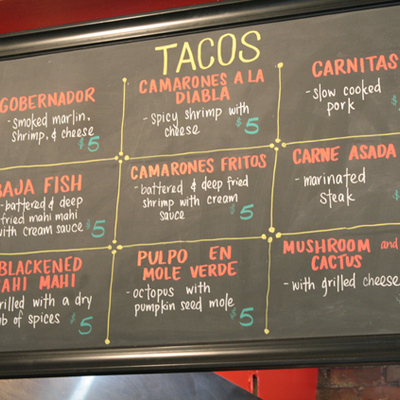 TACOS
GOBERNADOR
-smoked marlin,
shrimp, & cheese
$5
CAMARONES A LA
DIABLA
- spicy shrimp with
cheese
$5
CARNITAS
-slow cooked
pork
$
BAJA FISH
-battered & deep
fried mahi mahi
with cream sauce $5
CAMARONES FRITOS
- battered & deep fried
shrimp with cream
sauce
$5
CARNE ASADA
- marinated
steak
BLACKENED
MAHI MAHI
grilled with a dry
rub of spices $5
PULPO EN
MOLE VERDE
- octopus with
pumpkin seed mole
$5
MUSHROOM and
CACTUS
- with grilled cheese